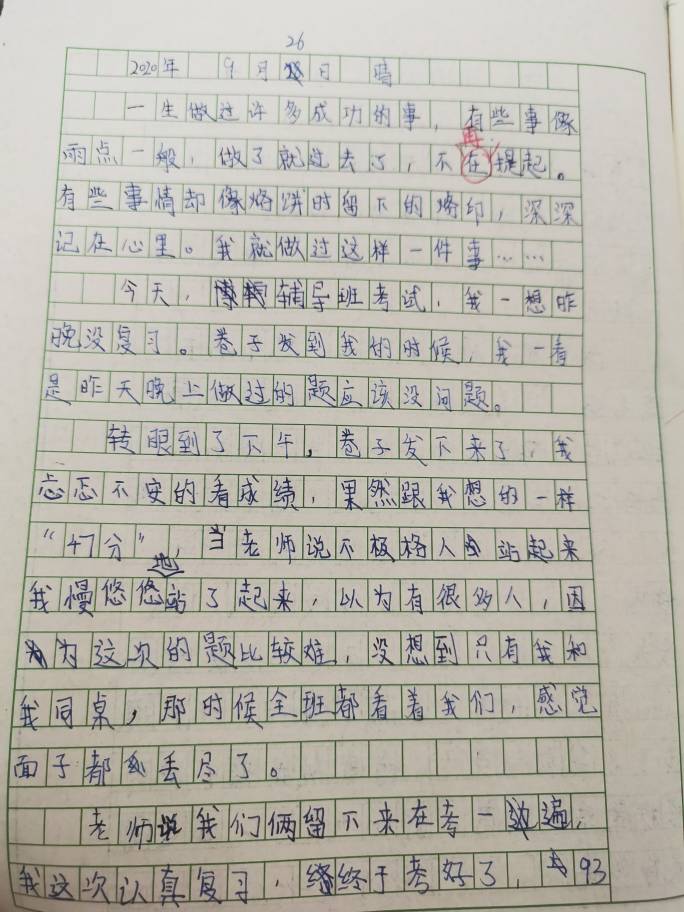 26
2020年 9月 日 晴
一生做过许多成功的事，有些事像
再
雨点一般，做了就过去了，不在提起。
有些事情却像烙饼时留下的烙印，深深
记在心里。我就做过这样一件事……
今天，辅导班考试，我一想昨
晚没复习。卷子发到我的时候，我一看
是昨天晚上做过的题应该没问题。
转眼到了下午，卷子发下来了，我
忐忑不安的看成绩，果然跟我想的一样
“47分”，当老师说不极格人站起来
地
我慢悠悠站了起来，以为有很多人，因
为这次的题比较难，没想到只有我和
我同桌，那时候全班都看着我们，感觉
面子都丢尽了。
老师说我们俩留下来在考一遍，
我这次认真复习，终于考好了，93